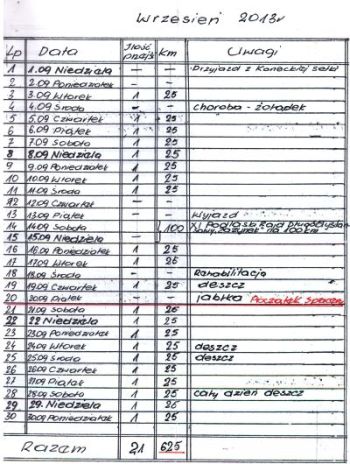 Wrzesień 2013r
Lp Data Ilość prajs km Uwagi
1 1.09 Niedziela — — Przyjazd z Koneckiej setki
2 2.09 Poniedziałek — —
3 3.09 Wtorek 1 25
4 4.09 Środa — — choroba - żołądek
5 5.09 Czwartek 1 25
6 6.09 Piątek 1 25
7 7.09 Sobota 1 25
8 8.09 Niedziela 1 25
9 9.09 Poniedziałek 1 25
10 10.09 Wtorek 1 25
11 11.09 Środa 1 25
12 12.09 Czwartek — —
13 13.09 Piątek — — Wyjazd
14 14.09 Sobota 100 XI Podlaski Rajd na 100 km
15 15.09 Niedziela —
16 16.09 Poniedziałek 1 25
17 17.09 Wtorek 1 25
18 18.09 Środa — — Rehabilitacja
19 19.09 Czwartek 1 25 deszcz
20 20.09 Piątek — — jabłka Początek
21 21.09 Sobota 1 25
22 22 Niedziela 1 25
23 23.09 Poniedziałek 1 25
24 24.09 Wtorek 1 25 deszcz
25 25.09 Środa 1 25 deszcz
26 26.09 Czwartek 1 25
27 27.09 Piątek 1 25
28 28.09 Sobota 1 25 cały dzień deszcz
29 29. Niedziela 1 25
30 30.09 Poniedziałek 1 25
Razem 21 625